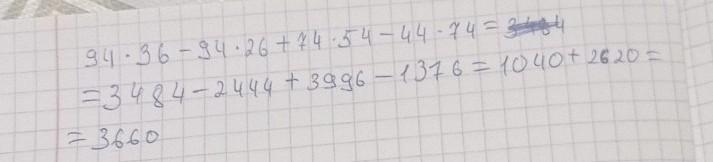 94 · 36 - 94 · 26 + 74 · 54 - 44 · 74 =
= 3484 - 2444 + 3996 - 1376 = 1040 + 2620 =
= 3660